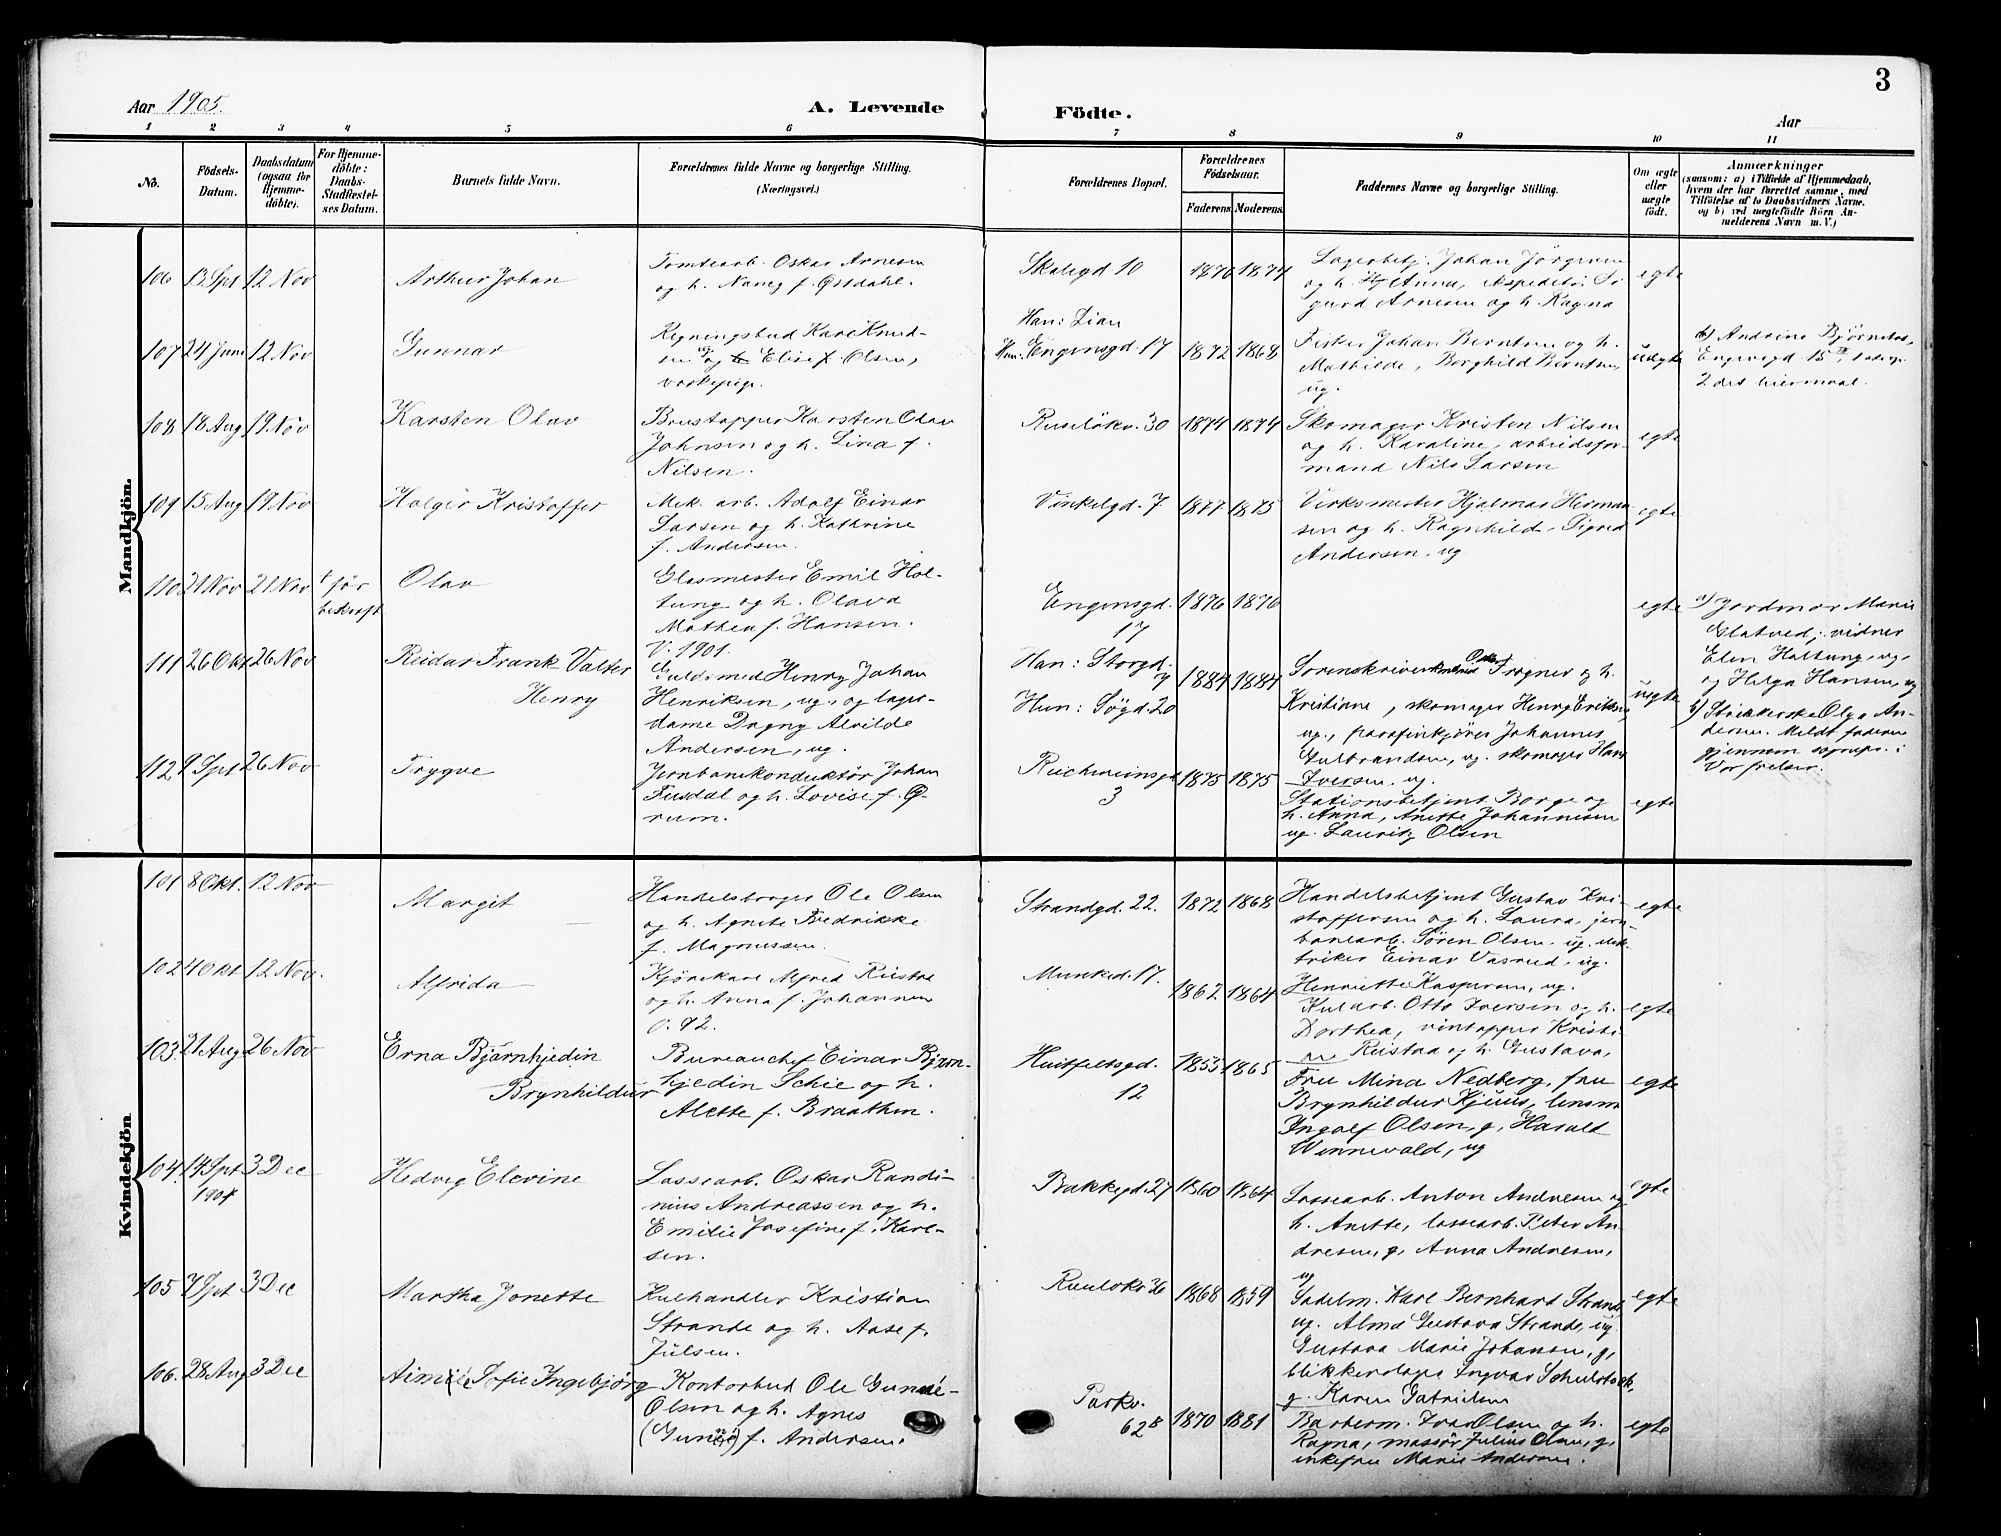 3
Aar 1905.
A. Levende Födte.
Aar
1 2 3 4 5 6 7 8 9 10 11
No.
Födsels-Datum.
Daabsdatum (ogsaa for Hjemme-döbte).
For Hjemme-döbte: Daabs-Stadfæstel-ses Datum.
Barnets fulde Navn.
Forældrenes fulde Navne og borgerlige Stilling.
(Næringsvei.)
Forældrenes Bopæl.
Forældrenes Födselsaar.
Faderens. Moderens.
Faddernes Navne og borgerlige Stilling.
Om ægte eller uægte födt.
Anmærkninger
(saasom: a) i Tilfælde af Hjemmedaab,
hvem der har forrettet samme, med
Tilföielse af to Daabsvidners Navne,
og b) ved uægtefödte Börn An-
melderens Navn m. V.)
Mandkjön.
106 13 Spt 12 Nov
Arthur Johan
Tomtearb. Oskar Arnesen
og h. Nancy f. Østdahl.
Skolegd 10
1870 1874
Lagerbetj. Johan Jörgensen
og h. Anna, ekspeditør Si-
gurd Arnesen og h. Ragna
egte
107 24 Juni 12 Nov
Gunnar
Regningsbud Karl Knud-
sen, g og Elise f. Olsen,
vaskepige.
Han: Lian
Hun: Engensgd. 17
1872 1868
Fisker Johan Berntsen og h.
Mathilde, Borghild Berntsen,
ug.
uegte
b) Andrine Bjørnstad,
Engensgd. 15
2det leiermaal.
108 18 Aug 19 Nov
Karsten Olav
Brustapper Karsten Olav
Johnsen og h. Lina f.
Nilsen.
Ruselökv. 30
1874 1874
Skomager Kristen Nilsen
og h. Karoline, arbeidsfor-
mand Nils Larsen
egte
109 15 Aug 19 Nov
Holger Kristoffer
Mek. arb. Adolf Einar
Larsen og h. Kathrine
f. Andersen.
Vinkelgd. 7
1877 1875
Verksmester Hjalmar Herman
sen og h. Ragnhild, Sigrid
Andersen, ug
egte
110 21 Nov 21 Nov
† før
bekræft.
Olav
Glasmester Emil Hol-
tung og h. Olava
Mathea f. Hansen.
V. 1901.
Engensgd.
17
1876 1870
egte
a) Jordmor Marie
Slatved; vidner
Elen Holtung, ug,
og Helga Hansen, ug
111 26 Okt 26 Nov
Reidar Frank Valter
Henry
Guldsmed Henry Johan
Henriksen, ug., og lager-
dame Dagny Alvilde
Andersen, ug.
Han: Storgd.
7
Hun: Søgd. 20
1884 1884
Sorenskriver Trogner & h.
Kristiane, skomager Henry Eriksen,
ug., parafinkjører Johannes
Gulbrandsen, ug. skomager Hans
Iversen, ug.
uegte
b) Strykerske Olga An-
dersen. Meldt faderen
gjennem sogнepr. i
Vor frelser.
112 9 Spt 26 Nov
Trygve
Jernbanekonduktør Johan
Fusdal og h. Lovise f. Ø-
rum.
3
1875 1875
Stationsbetjent Borge og
h. Anna, Anette Johannesen
ug. Lauritz Olsen
egte
Kvindekjön
101 8 Okt. 12 Nov
Margit
Handelsborger Ole Olsen
og h. Agnete Fredrikke
f. Magnussen.
Strandgd. 22.
1872 1868
Handelsbetjent Gustav Kri-
stoffersen og h. Laura, jern-
banearb. Søren Olsen, ug. elek-
triker Einar Vasrud, ug.
egte
102 4 Okt 12 Nov.
Alfrida
Kjørekarl Alfred Rustad
og h. Anna f. Johannsen
v. 92.
Munked. 17.
1862 1864
Henriette Kaspersen, ug.
Kularb. Otto Iversen og h.
Dorthea, vintapper Kristi-
an Rustad og h. Gustava,
egte
103 21 Aug 26 Nov
Erna Bjarnhjedin
Brynhildur
Bureauchef Einar Bjarn-
hjedin Schie og h.
Alette f. Braathen.
Huitfeltsgd.
12
1853 1865
Fru Mina Nedberg, fru
Brynhildur Kjuus, lensm.
Ingolf Olsen, g, Harald
Winnevald, ug
egte
104. 14 Spt 3 Dec
1904
Hedvig Elevine
Lossearb. Oskar Randi-
nius Andreassen og h.
Emilie Josefine f. Karl-
sen.
Bakkegd. 27
1860 1864
Lossearb. Anton Andresen og
h. Anette, lossearb. Peter An-
dresen, g, Anna Andresen,
ug
egte
105 7 Spt 3 Dec
Martha Jonette
Kulhandler Kristian
Strande og h. Aase f.
Julsen.
Ruselökv 36
1868 1859
Sadelm. Karl Bernhard Strande
ug. Alma Gustava Strande, ug
Gustava Marie Johansen, g,
blikkenslager Ingvar Schulstock,
g. Karen Gabrielsen
egte
106. 28 Aug 3 Dec
Aimée Sofie Ingebjörg
Kontorbud Ole Gunde-
Olsen og h. Agnes
f. Andersen.
Parkv.
62 B
1870 1881
Barberm. Ivar Olsen og h.
Ragna, massør Julius Olsen, g,
enkefru Marie Andersen.
egte